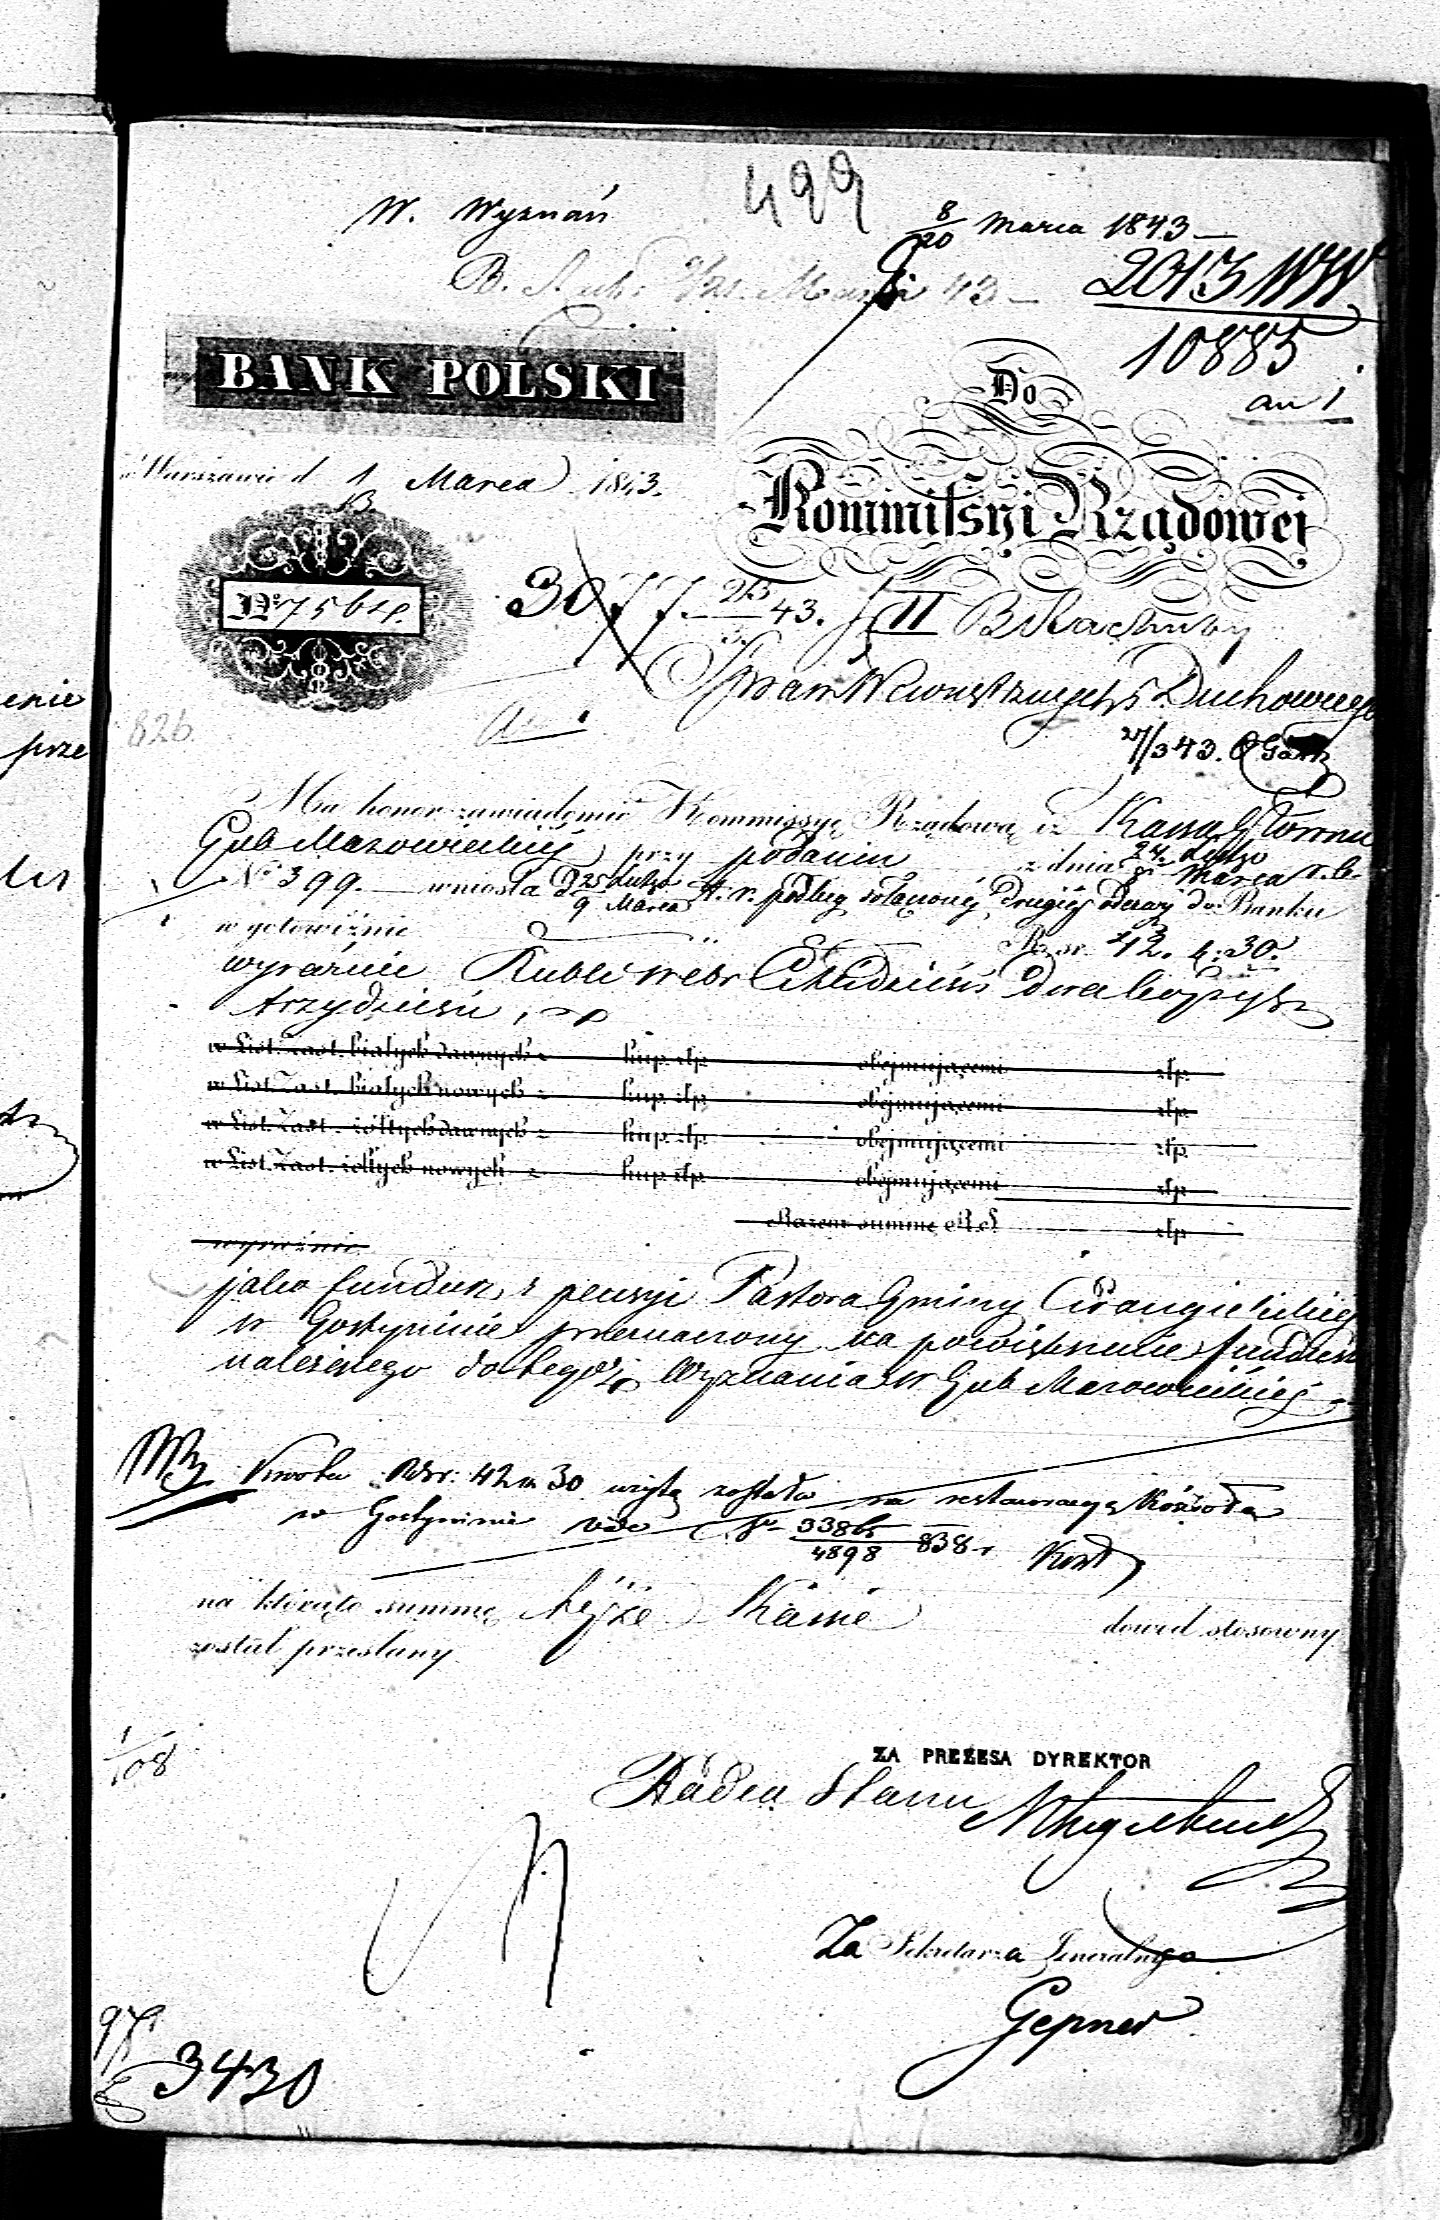 499
W. Wyznań
8/20 Marca 1843
2013 WW
10885
an 1
BANK POLSKI
Do
Warszawa d. 1/13 Marca 1843.
Kommissyi Rządowej
No 7561/2.
3077 43. II
Spraw Wewnętrznych i Duchownego
826
27/3 43.
Ma honor zawiadomić Kommissyę Rządową iż Kassa Główna
Gub Mazowieckiéj przy podaniu z dnia 24 Lutego Marca r. b.
No 399. wniosła d 25 Lutego 9 Marca t. r. podług dołączonéj drugiéj odezwy do Banku
w gotowiźnie R. sr. 42. k. 30.
wyraźnie Rubli srebr Czterdzieści dwa kopiejek
trzydzieści
w List. Zast. białych dawnych z kup. złp. obejmującemi złp.
w List. Zast. białych nowych z kup. złp. obejmującemi złp.
w List. Zast. żółtych dawnych z kup. złp. obejmującemi złp.
w List. Zast. żółtych nowych z kup. złp. obejmującemi złp.
Razem summę złp.
wyraźnie
jako fundusz z pensyi Pastora Gminy Ewangielickiéj
w Gostyninie przeznaczony na powiększenie funduszu
należącego do tegoż Wyznania w Gub Mazowieckiéj
Kwota RSr: 42 k 30 użytą została na restauracyą Kościoła
w Gostyninie vide 4898 838
na którąto summę téjże Kassie dowód stosowny
został przesłany
1/108
ZA PREZESA DYREKTOR
Radca Stanu
Za Sekretarza Jeneralnego
Gepner
3430